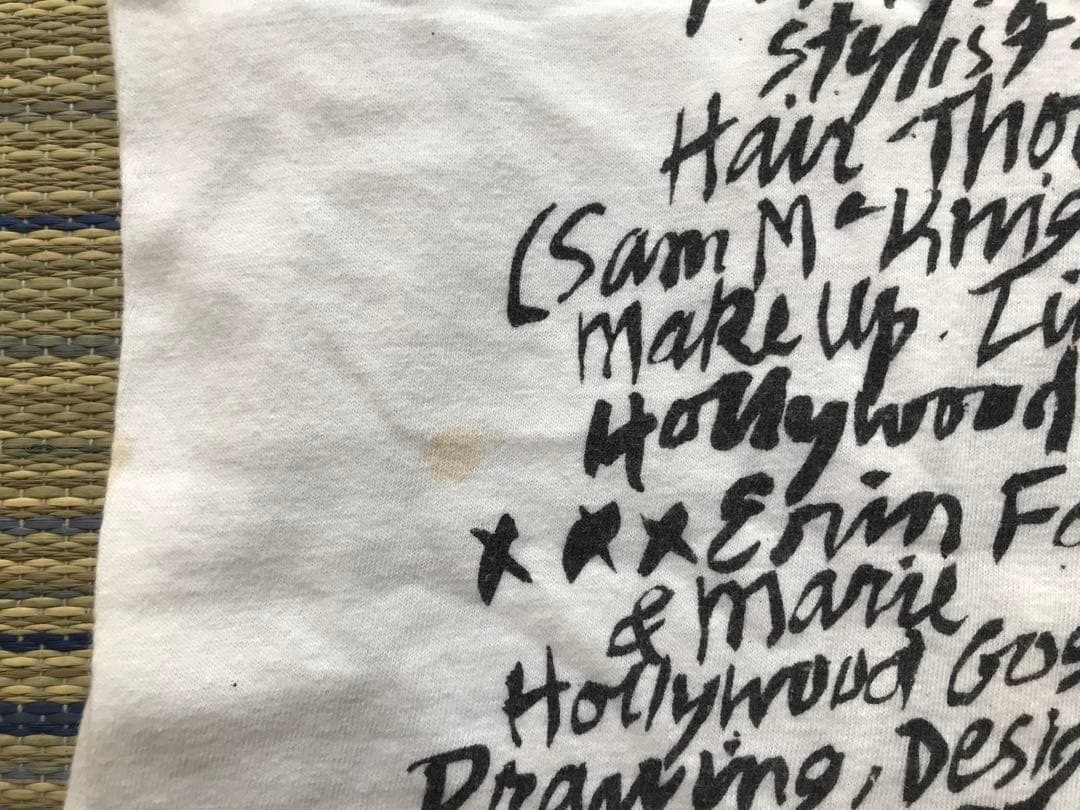 stylist
Hair Tho
(Sam McKnig
Make Up. Li
Hollywood
xxx Erin Fo
& Marie
Hollywood Gos
Drawing, Desig